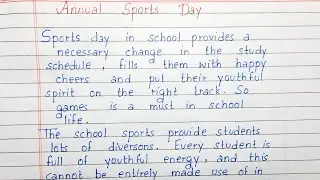 Annual Sports Day
Sports day in school provides a
necessary change in the study
schedule, fills them with happy
cheers and put their youthful
spirit on the right track. So
games is a must in school
life.
The school sports provide students
lots of diversons. Every student is
full of youthful energy, and this
cannot be entirely made use of in